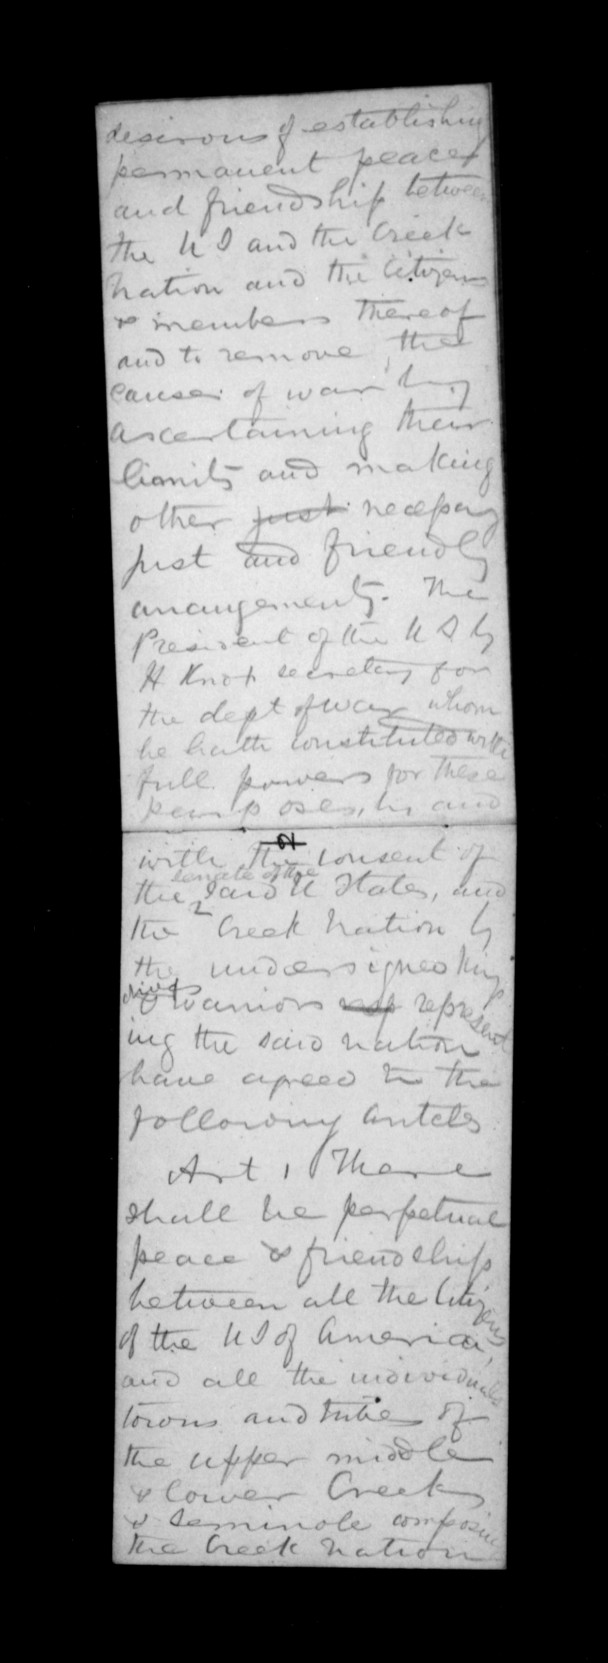 desirous of establishing
permanent peace
and friendship between
the U S and the Creek
Nation and the Citizens
& members thereof
and to remove the
cause of war by
ascertaining their
limits and making
other just necessary
just and friendly
arrangements. The
President of the U S by
H Knox secretary for
the dept of war whom
he hath constituted with
full powers for these
purposes, by and
with the consent of
senate of the
the said U States, and
the Creek Nation by
the undersigned Kings
chiefs
& Warriors represent
ing the said nation
have agreed to the
following articles
Art 1 There
shall be perpetual
peace & friendship
between all the Citizens
of the U S of America,
and all the individuals
towns and tribes of
the upper middle
& lower Creeks
& Seminole composing
the Creek Nation